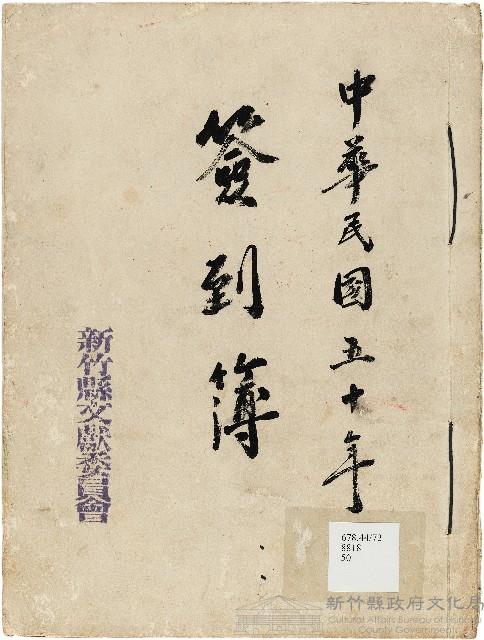 中華民國五十年
簽到簿
新竹縣文獻委員會
678.44/72
8818
50
新竹縣政府文化局
Cultural Affairs Bureau of Hsinchu
County Government